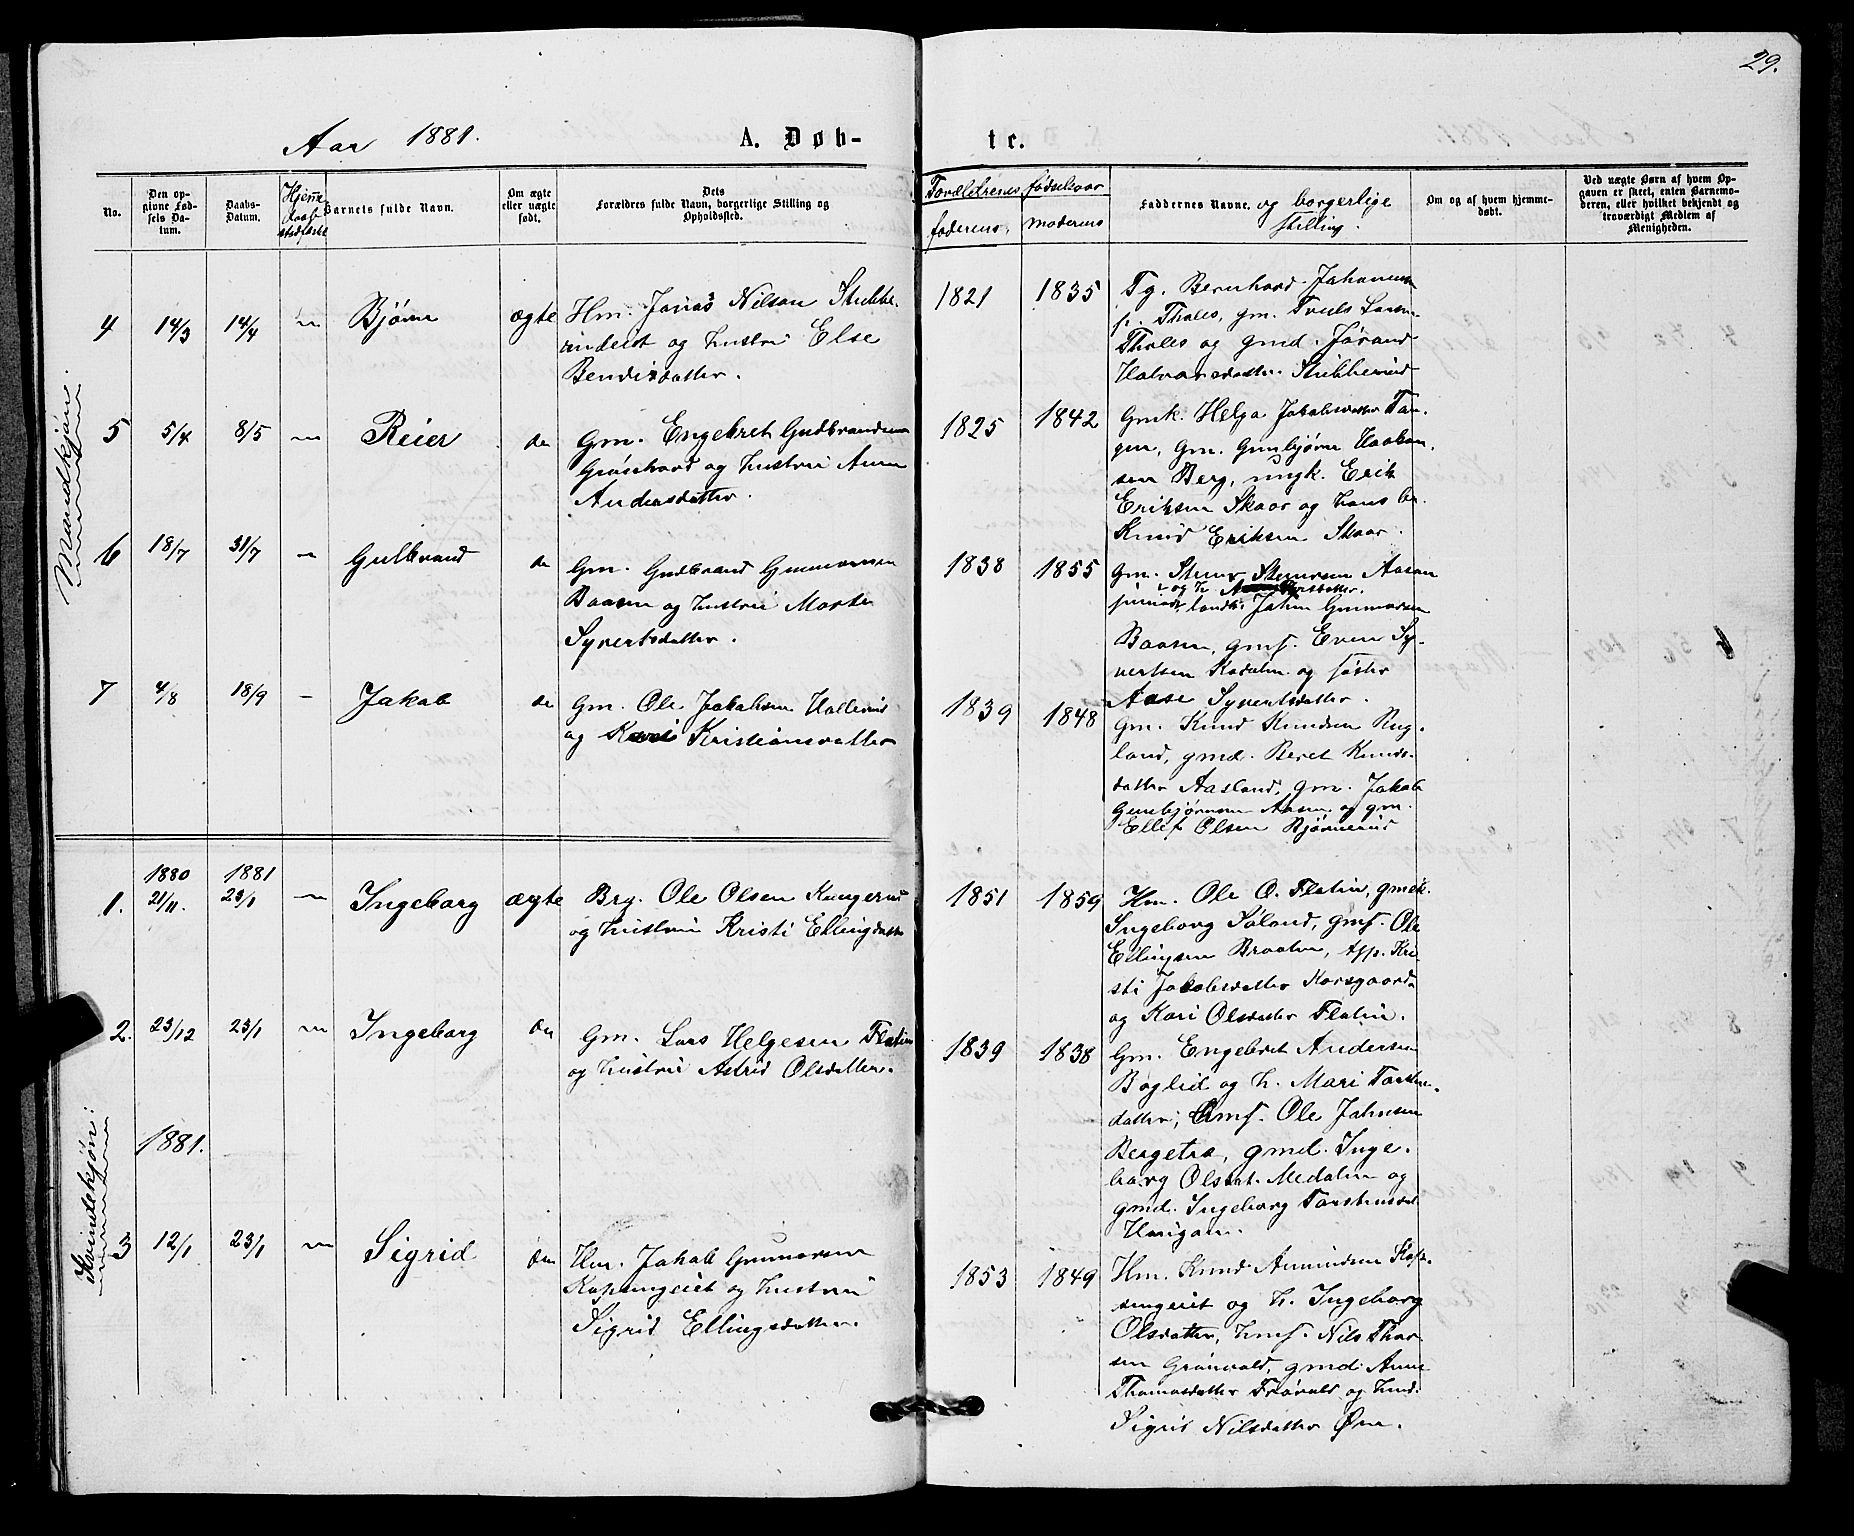 29.
Aar 1881.
A. Døb-
te.
No.
Den opgivne Fødsels Datum.
Daabs-Datum.
Barnets fulde Navn.
Om ægte eller uægte født.
Dets Forældres fulde Navn, borgerlige Stilling og Opholdssted.
Forældrenes fødselsaar
faderens,
moderens
Faddernes Navne. og borgerlige stilling.
Om og af hvem hjemmedøbt.
Ved uægte Børn af hvem Opgaven er skeet, enten Barnemoderen, eller hvilket bekjendt og troværdigt Medlem af Menigheden.
Mandkjøn.
4 14/3 14/4 Bjørn ægte
Hm. Jonas Nilsen
og hustru Else
Bendixdatter.
1821 1835
Tg. Bernhard Johannesen
p. Tholes, gm. Truls Larsen
Tholes og gmd. Jørand
Halvorsdatter Stubberud
5 5/4 8/5 Reier do
Gm. Engebret Gudbrandsen
Grønhovd og hustru Anne
Andersdatter.
1825 1842
Gmk. Helga Jakobsdatter
gm. Gunbjørn Haakon-
sen Berg, ungk. Erik
Eriksen Skaar og hans br.
Knud Eriksen Skaar.
6 18/7 31/7 Gulbrand do
Gm. Gudbrand Gunnarsen
Baasen og hustru Marte
Syvertsdatter.
1838 1855
Gm. Stener Stenersen Aasan
og h.
Johan Gunnarsen
Baasen, gmf. Even Sy-
vertsen Kodalen og søster
Aase Syvertsdatter.
7 4/8 18/9 Jakob do
Gm. Ole Jakobsen Hallerud
og Kari Kristiansdatter
1839 1848
Gm. Knud Knudsen Rug-
land, gmd. Beret Knuds-
datter Aasland, gm. Jakob
Gunbjørnsen Aasen og gm.
Ellef Olsen Bjørnerud
Kvindekjøn:
1880 1881
1. 21/11. 23/1 Ingeborg ægte
Brg. Ole Olsen
og hustru Kristi Ellingsdatter
1851 1859
Hm. Ole O. Flatin, gmek.
Ingeborg Søland, gmf. Ole
Ellingsen Braaten, tpp. Kri-
sti Jakobsdatter Korsgaard
og Kari Olsdatter Flatin.
2. 23/12 23/1 Ingeborg do
Gm. Lars Helgesen Flatin
og hustru Astrid Olsdatter.
1839 1838
Gm. Engebret Andersen
Bøglid og h. Mari Torstens-
datter, Gmf. Ole Johnsen
Bergetra, gmd. Inge-
borg Olsdat. Medalen og
gmd. Ingeborg Torstensdat.
1881.
3 12/1 23/1 Sigrid do
Hm. Jakob Gunnarsen
og hustru
Sigrid Ellingsdatter.
1853 1849
Hm. Knud Amundsen
og h. Ingeborg
Olsdatter, hmf. Nils Thor-
sen Grønvold, gmd. Anne
Thomasdatter Frøvold og hmd.
Sigrid Nilsdatter Øen.